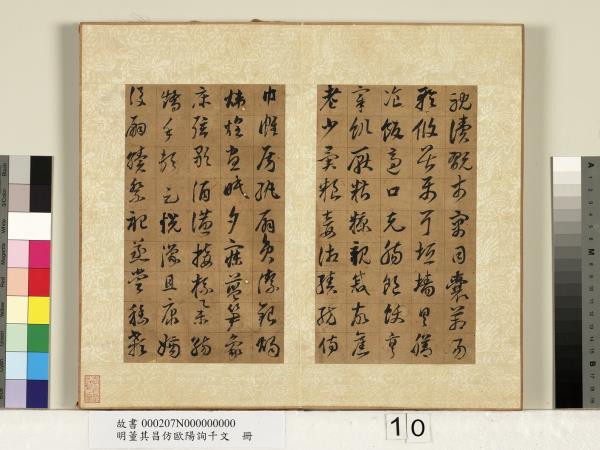 耽讀翫市寓目囊箱易
輶攸畏屬耳垣墻具膳
飡飯適口充腸飽飫烹
宰飢厭糟糠親戚故舊
老少異粮妾御績紡侍
巾帷房紈扇員潔銀燭
煒煌晝眠夕寐藍笋象
床弦歌酒讌接杯舉觴
矯手頓足悅豫且康嫡
後嗣續祭祀蒸嘗稽顙
故書 000207N000000000
明董其昌仿歐陽詢千文 冊
10